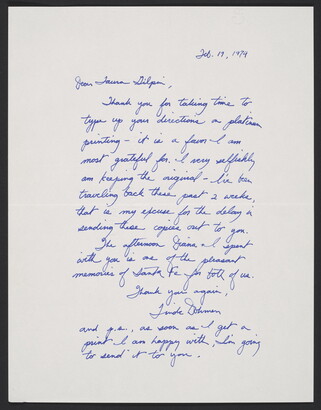 Feb. 19, 1979
Dear Laura Gilpin,
Thank you for taking time to
type up your directions on platinum
printing - it is a favor I am
most grateful for. I very selfishly
am keeping the original - I've been
traveling back these past 2 weeks,
that is my excuse for the delay in
sending these copies out to you.
The afternoon Diane & I spent
with you is one of the pleasant
memories of Santa Fe for both of us.
Thank you again,
Linda
and p.s., as soon as I get a
print I am happy with, I'm going
to send it to you.